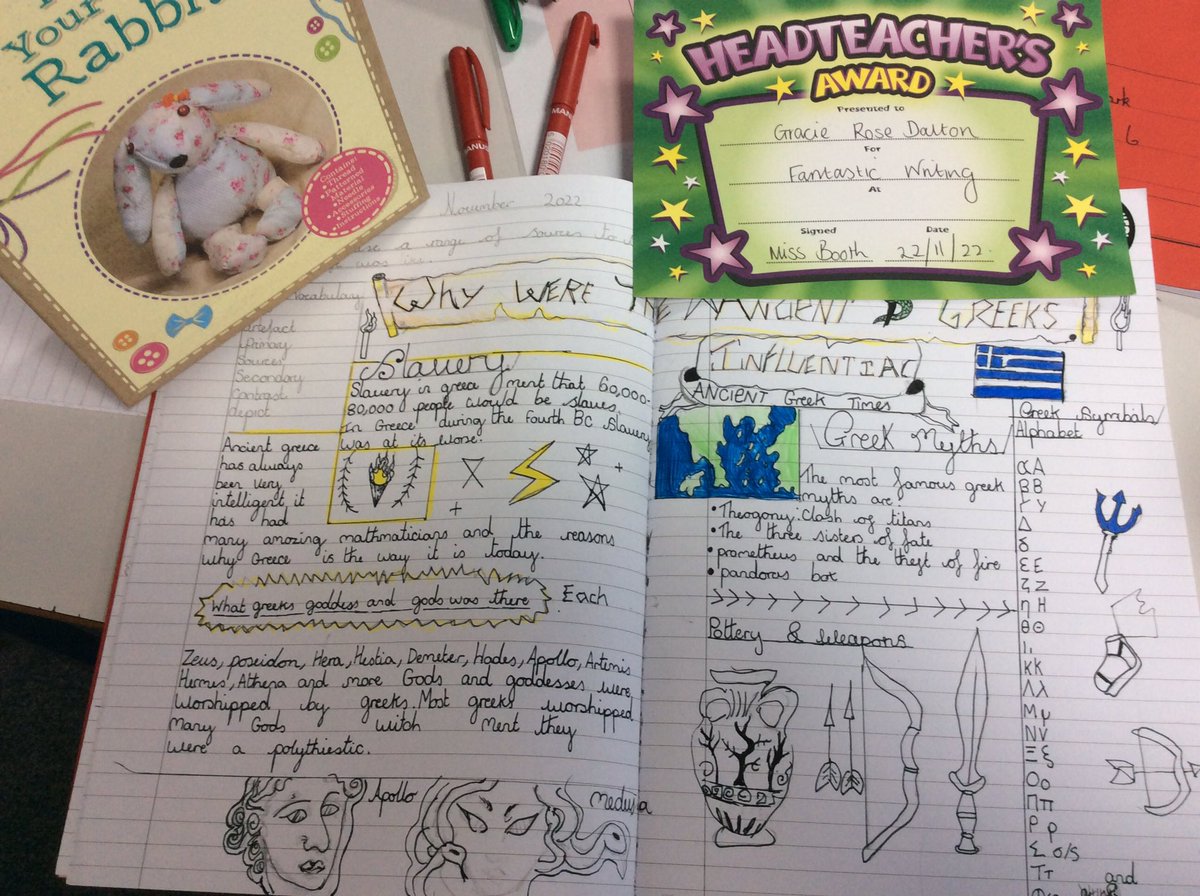 Your
Rabbi
Contains:
• Thread
• Patterned
Material
• Needle
• Accessories
• Stuffing
• Instructions
HEADTEACHER'S
AWARD
Presented to
Gracie Rose Dalton
For
Fantastic Writing
At
Signed
Date
Miss Booth
22/11/22.
6
November 2022
a range of sources to
was like.
Vocabulary
artefact
Primary
Sources
Secondary
Contrast
depict
Why WERE
ANCIENT GREEKS
Slavery
Slavery in greece ment that 60,000-
80,000 people would be slaves
in Greece during the fourth BC Slavery
was at its worse.
Ancient greece
has always
been very
intelligent it
has had
many amazing mathmaticians and the reasons
why Greece is the way it is today.
What greeks goddess and gods was there. Each
Zeus, poseidon, Hera, Hestia, Demeter, Hades, Apollo, Artemis
Hermes, Athena and more Gods and goddesses were
worshipped by greeks. Most greeks worshipped
Many Gods witch ment they
were a polythiestic.
Apollo
Medusa
INFLUENTIAL
ANCIENT Greek Times
Greek Myths
The most famous greek
myths are:
• Theogony: Clash of titans
• The three sisters of fate
• prometheus and the theft of fire
• pandoras box
Pottery & Weapons
Greek Symbols/
Alphabet
αΑ
βΒ
Γγ
Δ
δ
εΕ
ζΖ
ηΗ
θΘ
κΚ
Λλ
Μμ
Νν
Ξξ
Οο
Ππ
Ρρ
Σ σ/ς
Ττ
and